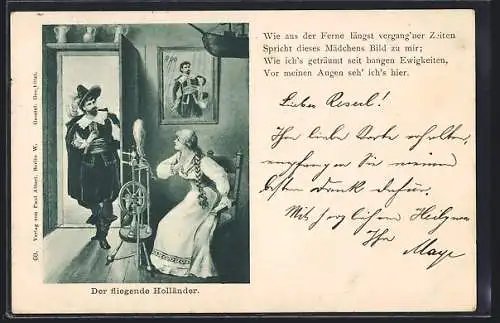 Wie aus der Ferne längst vergang'ner Zeiten
Spricht dieses Mädchens Bild zu mir;
Wie ich's geträumt seit bangen Ewigkeiten,
Vor meinen Augen seh' ich's hier.
Liebes Reserl!
Ihre liebe Karte erhalten,
empfangen Sie meinen
besten Dank dafür.
Mit herzlichem
Ihr
60. Verlag von Paul Albert, Berlin W.
Der fliegende Holländer.